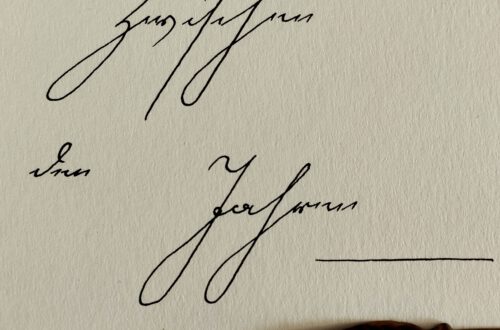 zwischen
den
Jahren